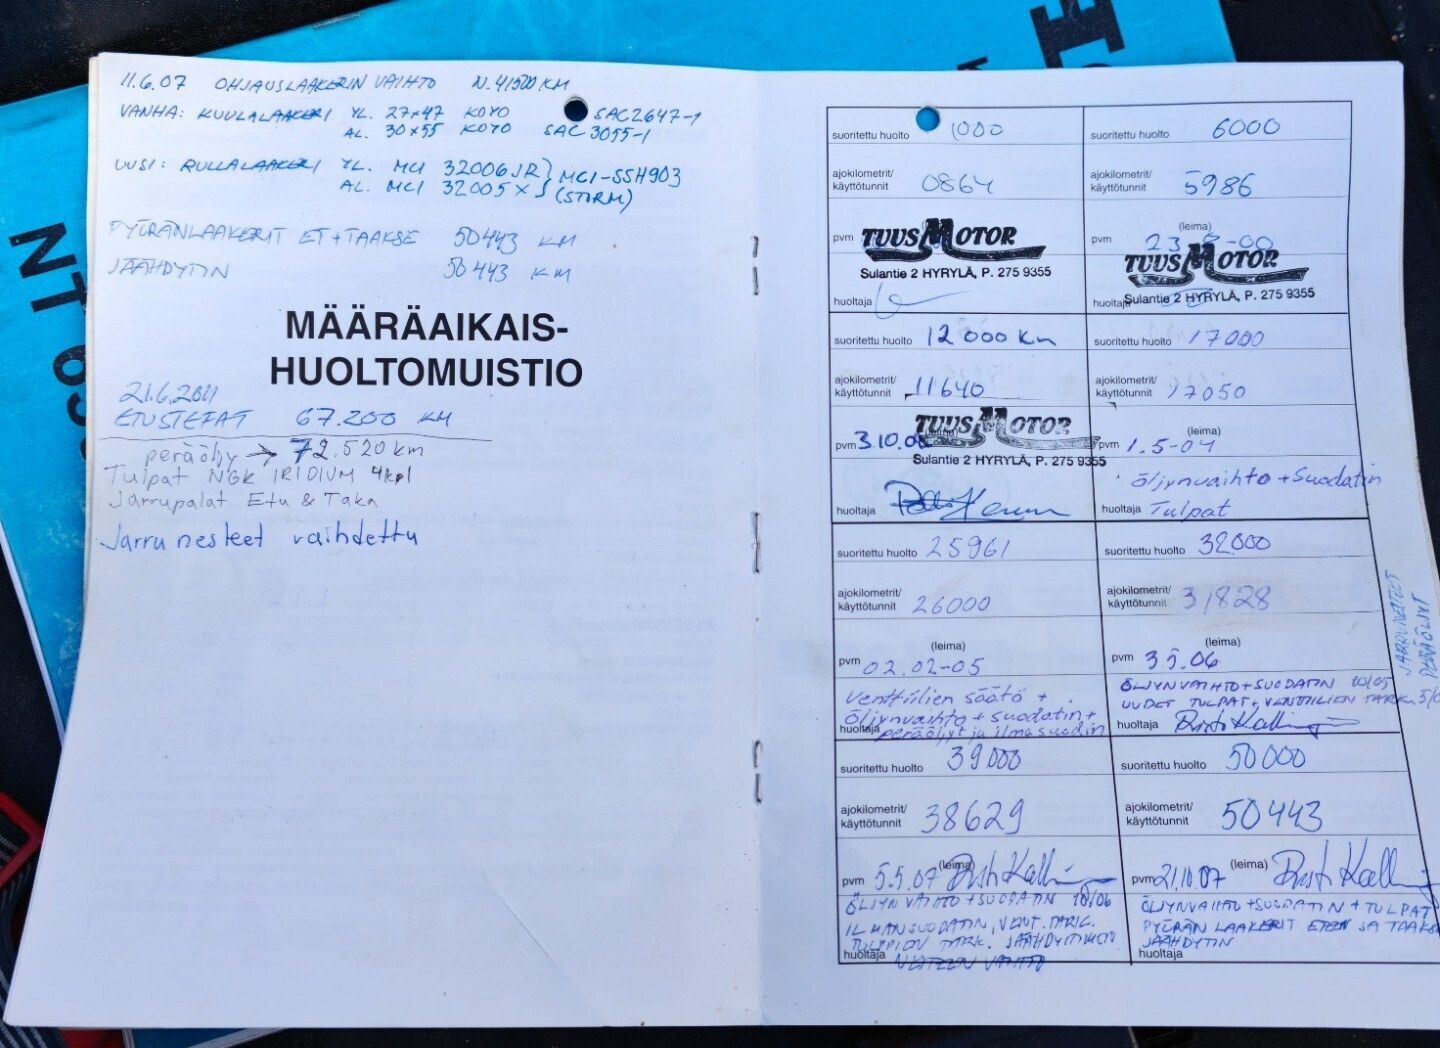 11.6.07 OHJAUSLAAKERIN VAIHTO N. 41500 KM
VANHA: KUULALAAKERI YL. 27x47 KOYO SAC2647-1
AL. 30x55 KOYO SAC 3055-1
UUSI: RULLALAAKERI YL. MCI 32006JR } MCI-SSH903
AL. MCI 32005X (STORM)
PYÖRÄNLAAKERIT ET+TAAKSE 50443 KM
JÄÄHDYTIN 50443 KM
MÄÄRÄAIKAIS-
HUOLTOMUISTIO
21.6.2011
ETUSTEFAT 67.200 KM
peräöljy → 72.520 km
Tulpat NGK IRIDIUM 4kpl
Jarrupalat Etu & Taka
Jarru nesteet vaihdettu
suoritettu huolto 1000
ajokilometrit/
käyttötunnit 0864
pvm
TUUSMOTOR
Sulantie 2 HYRYLÄ, P. 275 9355
huoltaja
suoritettu huolto 6000
ajokilometrit/
käyttötunnit 5986
(leima)
pvm 23 -00
TUUSMOTOR
huoltaja Sulantie 2 HYRYLÄ, P. 275 9355
suoritettu huolto 12 000 Km
ajokilometrit/
käyttötunnit 11640
TUUSMOTOR
pvm 3.10.0
Sulantie 2 HYRYLÄ, P. 275 9355
huoltaja
suoritettu huolto 17000
ajokilometrit/
käyttötunnit 17050
(leima)
pvm 1.5-04
öljynvaihto + Suodatin
huoltaja Tulpat
suoritettu huolto 25961
ajokilometrit/
käyttötunnit 26000
(leima)
pvm 02.02-05
Venttiilien säätö +
öljynvaihto + suodatin +
huoltaja peräöljyt ja ilmasuodin
suoritettu huolto 32000
ajokilometrit/
käyttötunnit 31828
(leima)
pvm 3.5.06
ÖLJYNVAIHTO+SUODATIN 10/05
UUDET TULPAT, VENTTIILIEN TARK. 5/0
huoltaja Risto Kalli
JARRUNESTEET
PERÄÖLJYT
suoritettu huolto 39000
ajokilometrit/
käyttötunnit 38629
(leima)
pvm 5.5.07 Risto Kalli
ÖLJYNVAIHTO+SUODATIN 10/06
ILMANSUODATIN, VENT. TARK.
TULPPIEN TARK. JÄÄHDYTTIMEN
huoltaja NESTEEN VAIHTO
suoritettu huolto 50000
ajokilometrit/
käyttötunnit 50443
(leima)
pvm 21.10.07 Risto Kalli
ÖLJYNVAIHTO+SUODATIN+TULPAT
PYÖRÄN LAAKERIT ETEEN JA TAAKSE
JÄÄHDYTIN
huoltaja